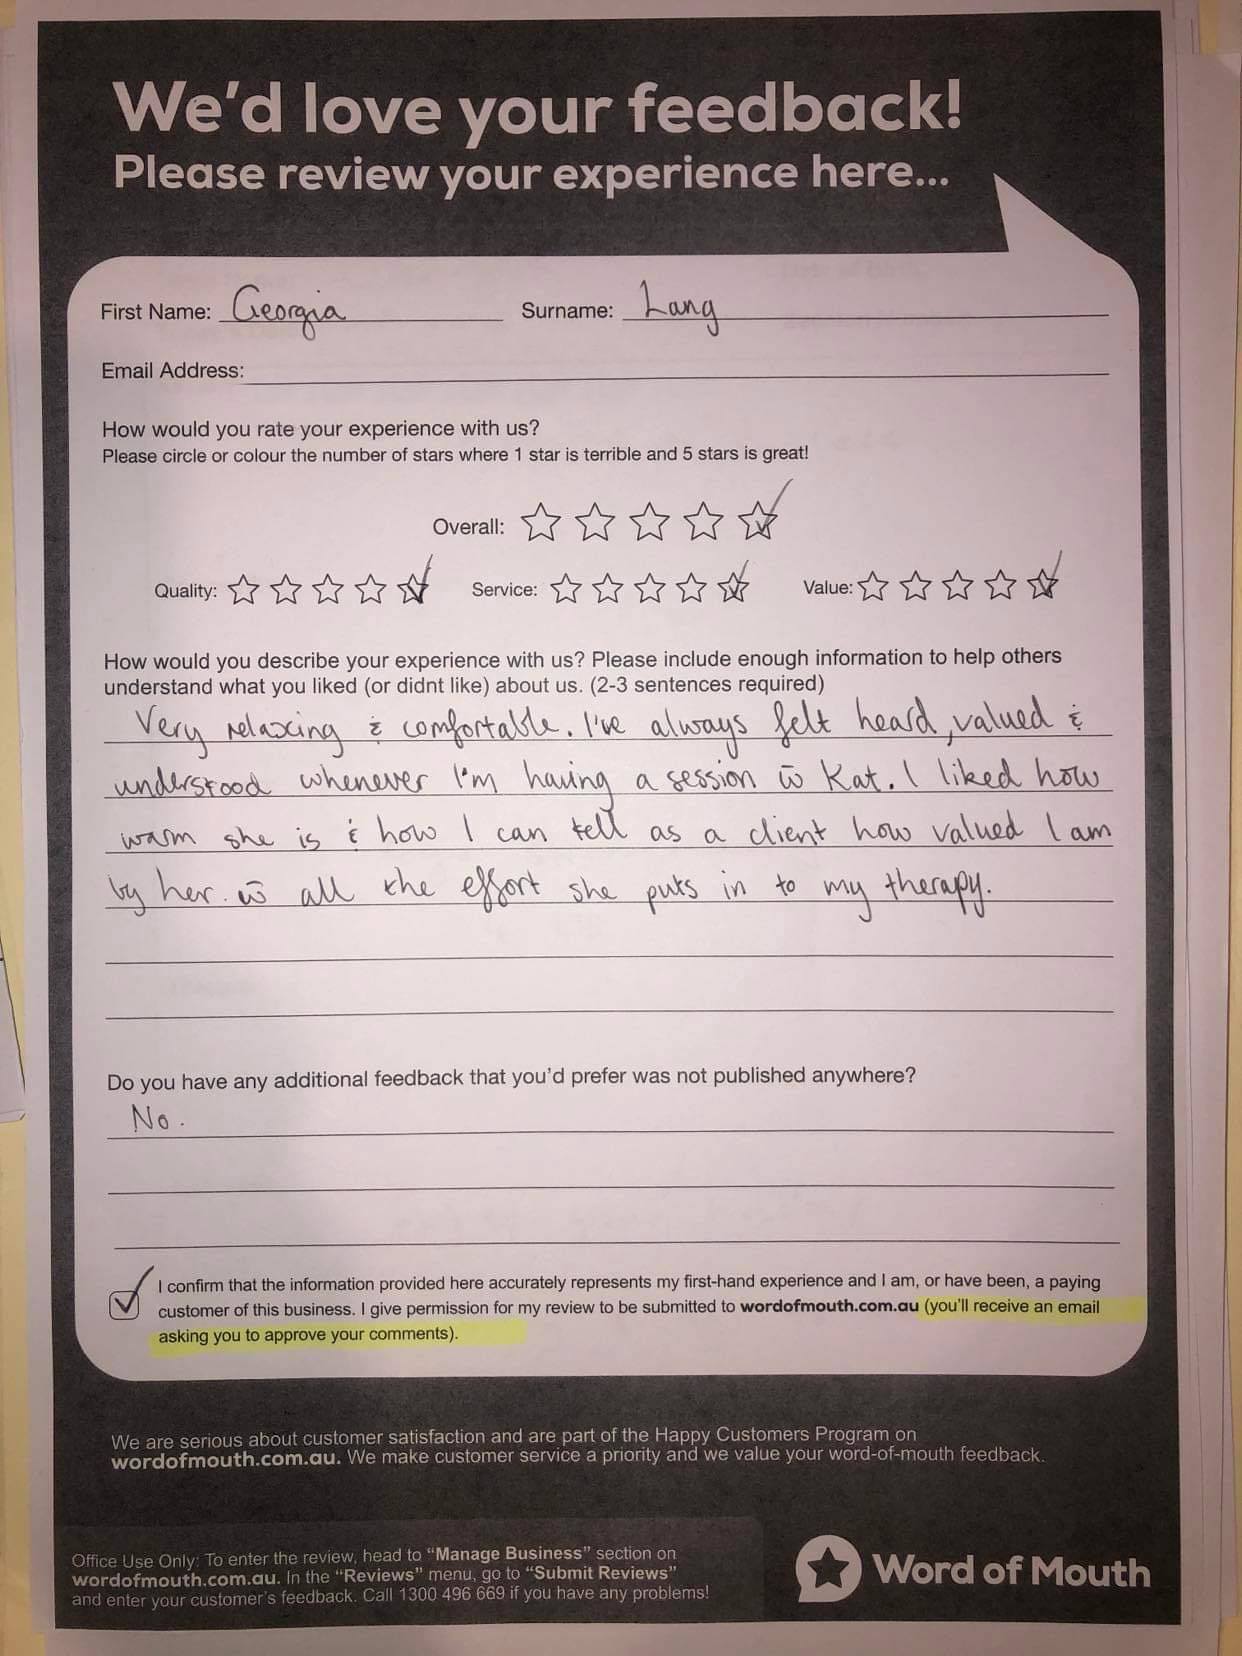 We'd love your feedback!
Please review your experience here...
First Name: Georgia Surname: Lang
Email Address:
How would you rate your experience with us?
Please circle or colour the number of stars where 1 star is terrible and 5 stars is great!
Overall:
Quality: Service: Value:
How would you describe your experience with us? Please include enough information to help others
understand what you liked (or didnt like) about us. (2-3 sentences required)
Very relaxing & comfortable. I've always felt heard, valued &
understood whenever I'm having a session w̄ Kat. I liked how
warm she is & how I can tell as a client how valued I am
by her. w̄ all the effort she puts in to my therapy.
Do you have any additional feedback that you'd prefer was not published anywhere?
No.
I confirm that the information provided here accurately represents my first-hand experience and I am, or have been, a paying
customer of this business. I give permission for my review to be submitted to wordofmouth.com.au (you'll receive an email
asking you to approve your comments).
We are serious about customer satisfaction and are part of the Happy Customers Program on
wordofmouth.com.au. We make customer service a priority and we value your word-of-mouth feedback.
Office Use Only: To enter the review, head to "Manage Business" section on
wordofmouth.com.au. In the "Reviews" menu, go to "Submit Reviews"
and enter your customer's feedback. Call 1300 496 669 if you have any problems!
Word of Mouth